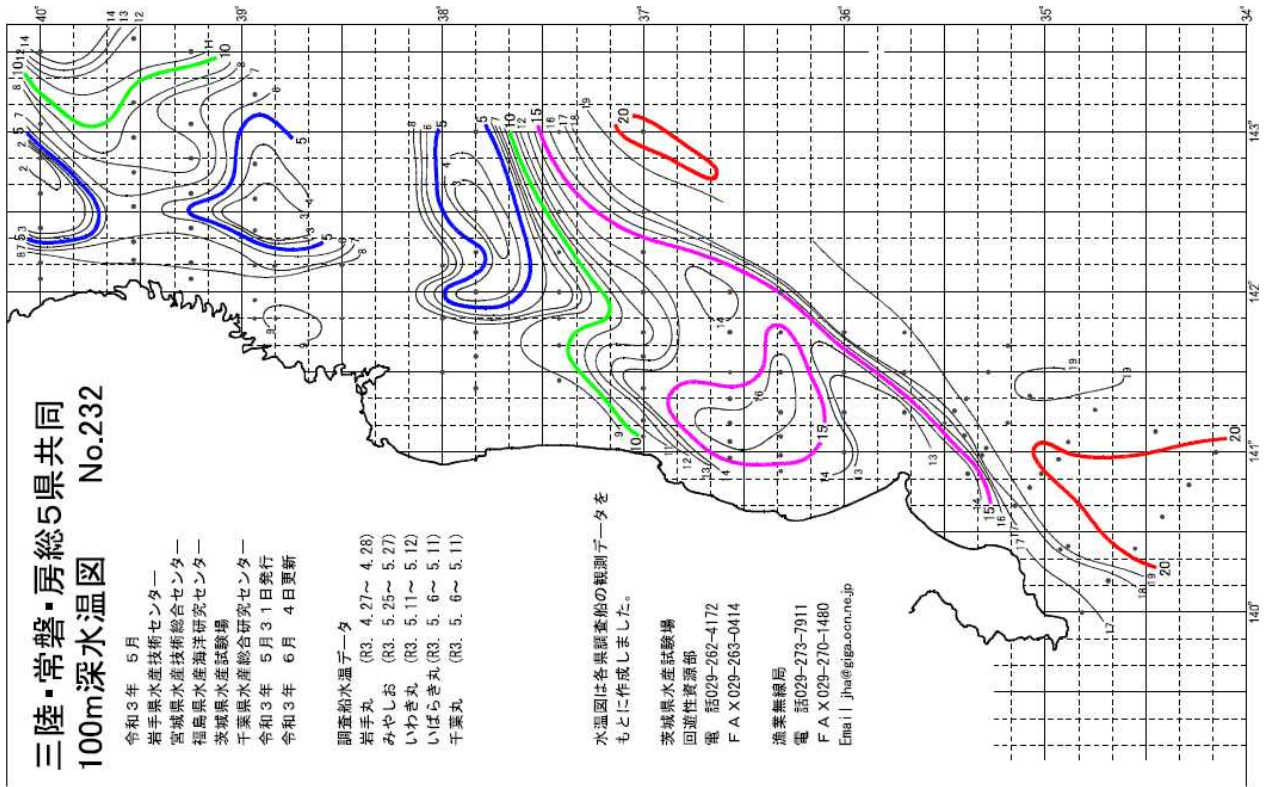 三陸・常磐・房総5県共同
100m深水温図 No.232
令和3年 5月
岩手県水産技術センター
宮城県水産技術総合センター
福島県水産海洋研究センター
茨城県水産試験場
千葉県水産総合研究センター
令和3年 5月31日発行
令和3年 6月 4日更新
調査船水温データ
岩手丸 (R3. 4.27～ 4.28)
みやしお (R3. 5.25～ 5.27)
いわき丸 (R3. 5.11～ 5.12)
いばらき丸(R3. 5. 6～ 5.11)
千葉丸 (R3. 5. 6～ 5.11)
水温図は各県調査船の観測データを
もとに作成しました。
茨城県水産試験場
回遊性資源部
電 話029-262-4172
ＦＡＸ029-263-0414
漁業無線局
電 話029-273-7911
ＦＡＸ029-270-1480
Email jha@giga.ocn.ne.jp
40°
39°
38°
37°
36°
35°
34°
143°
142°
141°
140°